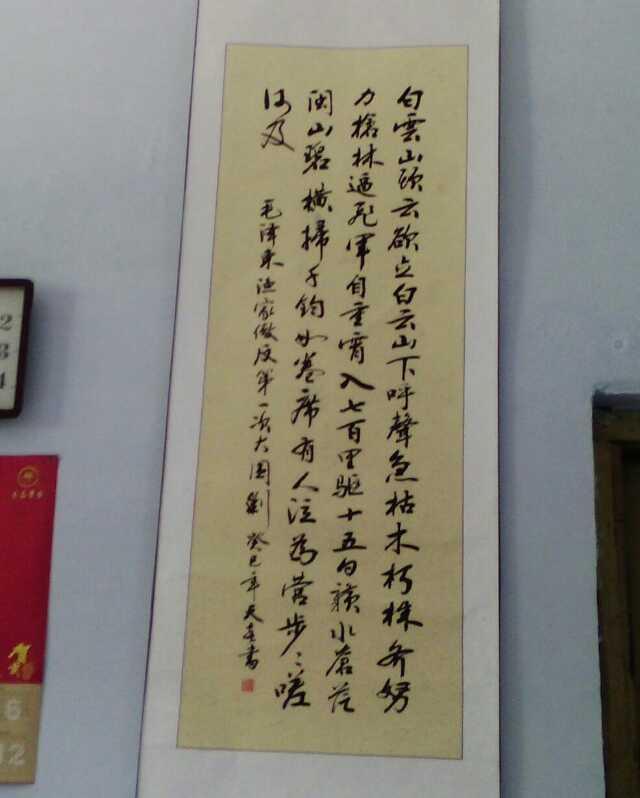 白雲山頭云欲立白云山下呼聲急枯木朽株齐努
力槍林逼飛軍自重霄入七百里驱十五日贛水蒼茫
闽山碧橫掃千鈞如卷席有人泣為營步〻嗟
何及
毛泽東渔家傲反第一次大围剿 癸巳年天書
2
3
4
6
12